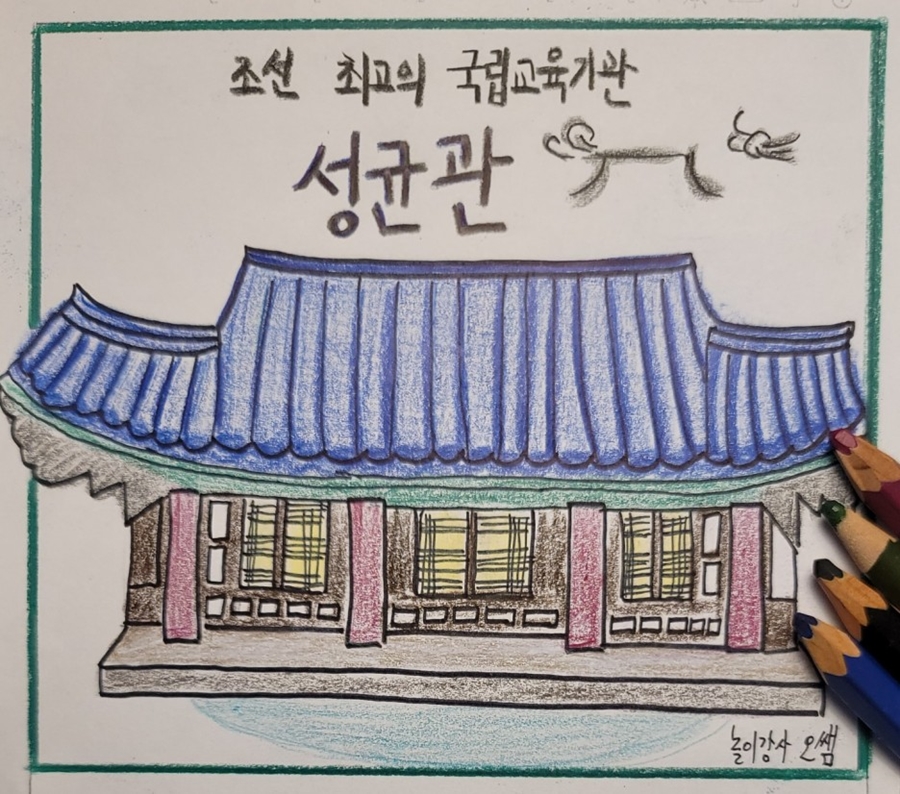 조선 최고의 국립교육기관
성균관
놀이강사 오쌤